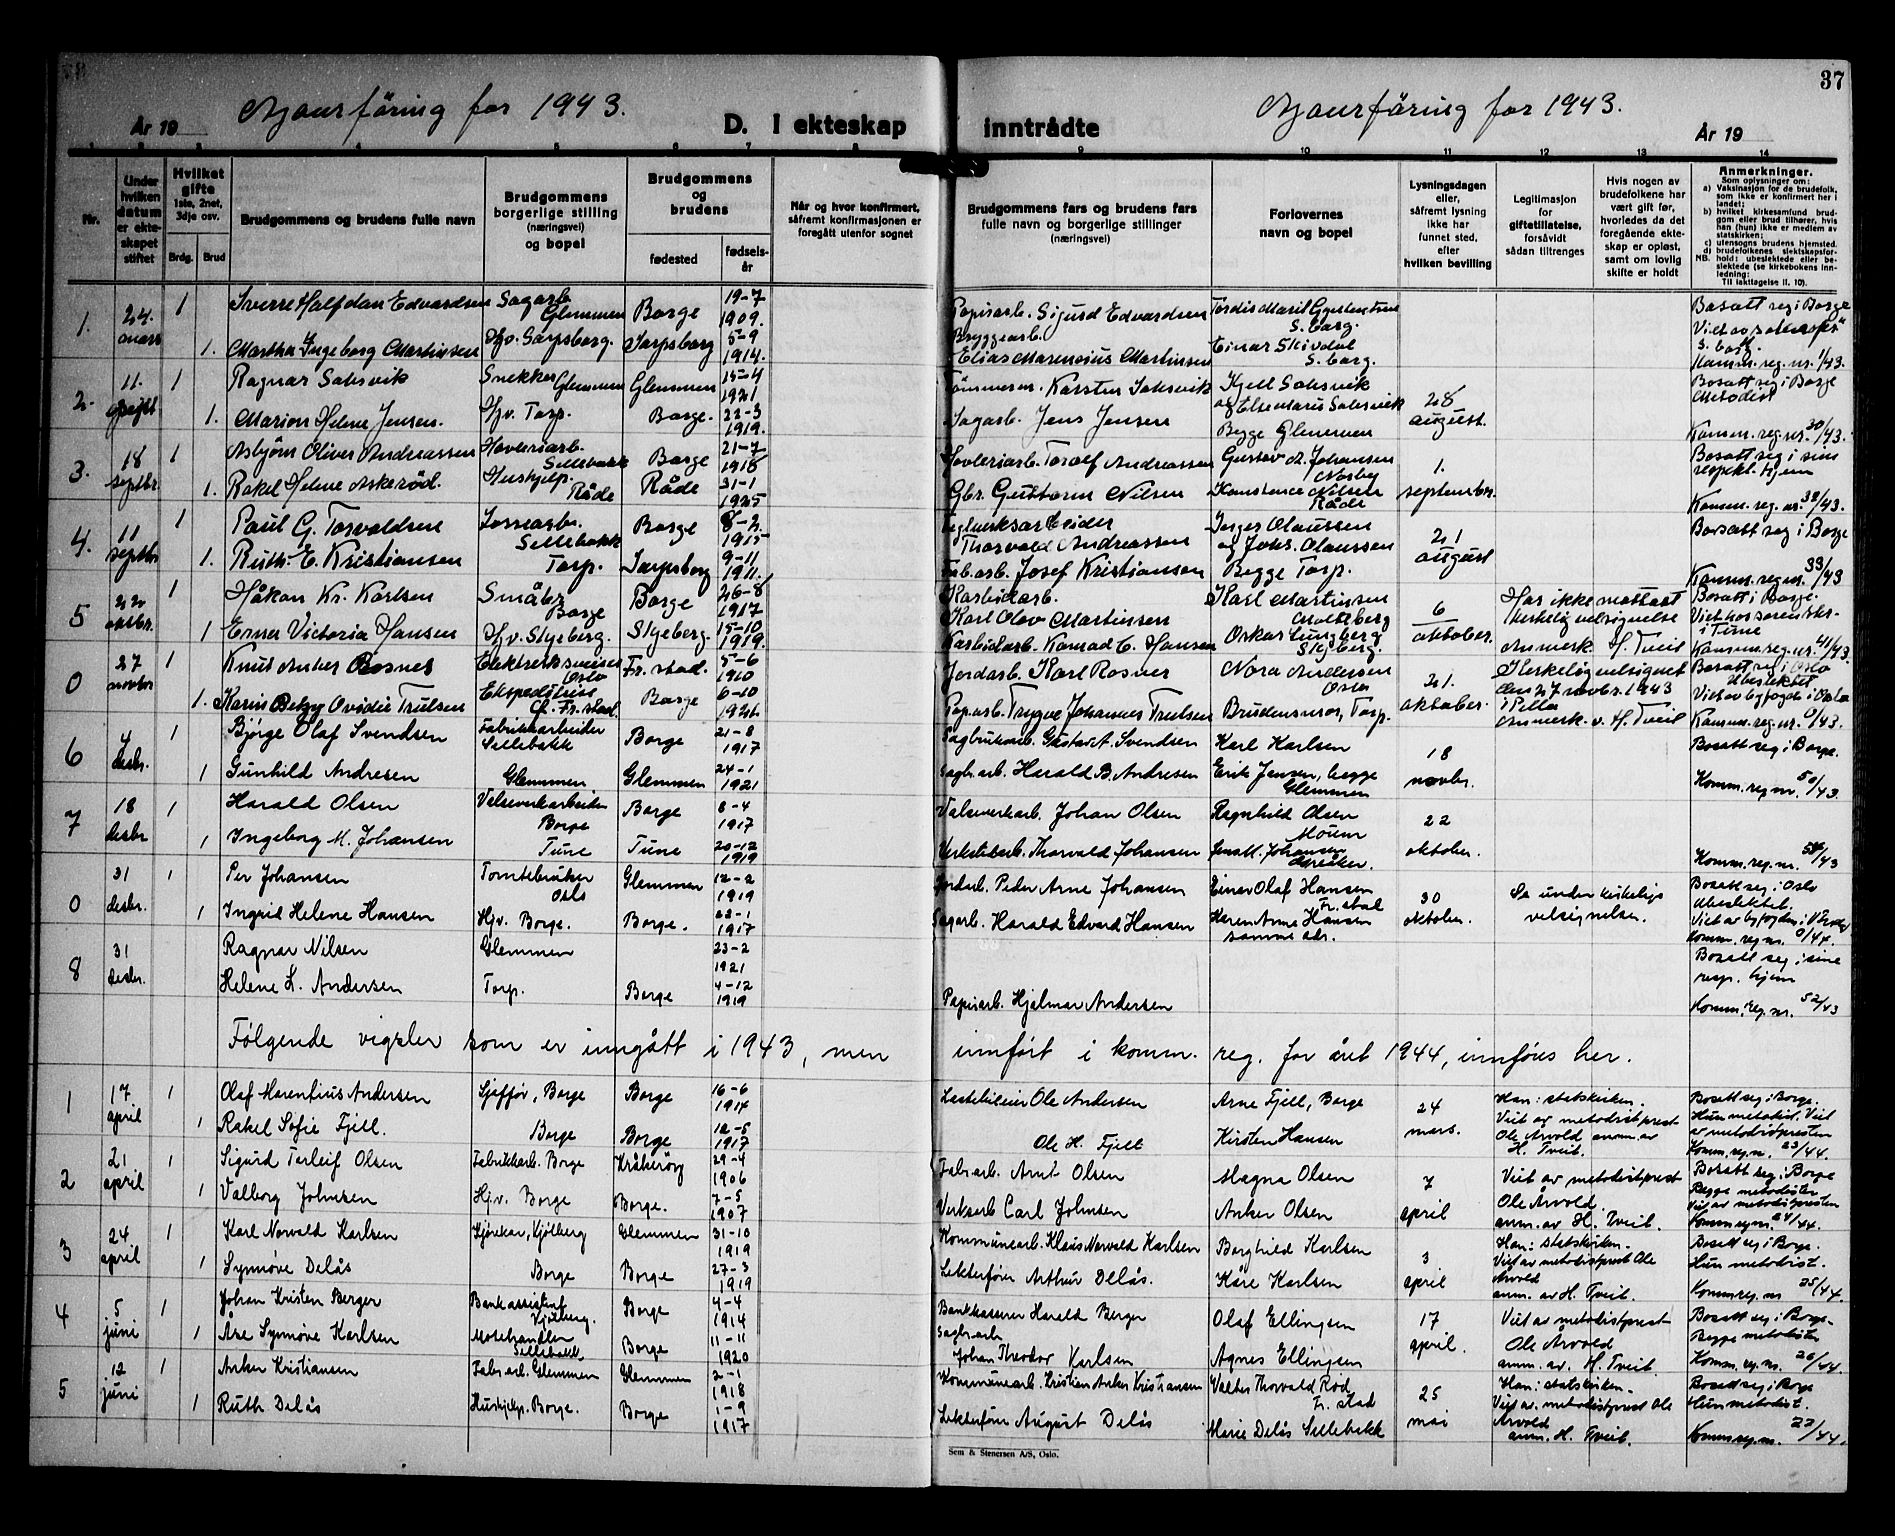 37
Ajourføring for 1943.
Ajourføring for 1943.
År 19
D. I ekteskap
inntrådte
År 19
1 2 3 4 5 6 7 8 9 10 11 12 13 14
Nr.
Under hvilken datum er ekteskapet stiftet
Hvilket gifte 1ste, 2net, 3dje osv.
Brdg. Brud
Brudgommens og brudens fulle navn
Brudgommens borgerlige stilling (næringsvei) og bopel
Brudgommens og brudens
fødested
fødsels-år
Når og hvor konfirmert, såfremt konfirmasjonen er foregått utenfor sognet
Brudgommens fars og brudens fars fulle navn og borgerlige stillinger (næringsvei)
Forlovernes navn og bopel
Lysningsdagen eller, såfremt lysning ikke har funnet sted, efter hvilken bevilling
Legitimasjon for giftetillatelse, forsåvidt sådan tiltrenges
Hvis nogen av brudefolkene har vært gift før, hvorledes da det foregående ekteskap er opløst, samt om lovlig skifte er holdt
Anmerkninger.
Som oplysninger om:
a) Vaksinasjon for de brudefolk, som ikke er konfirmert her i landet;
b) hvilket kirkesamfund brudgom eller brud tilhører, hvis han (hun) ikke er medlem av statskirken;
c) utensogns brudens hjemsted.
d) brudefolkenes slektskapsforhold: ubeslektede eller beslektede (se kirkebokens innledning:
NB. Til iakttagelse II. 10).
1. 24. mars 1 Sverre Halfdan Edvardsen Sagarb. Glemmen Borge 19-7 1909. Papirarb. Sigurd Edvardsen S.borg. Bosatt seg i Borge
1. Martha Ingeborg Martinsen Hv. Sarpsborg. Sarpsborg 5-9 1914. Bryggearb. Elias Marensius Martinsen Einar Skivdal S.borg. Komm.reg.nr. 1/43.
2. 11. 1 Ragnar Solsvik Snekker Glemmen Glemmen 15-4 1921 Tømmerm. Karsten Solsvik Kjell Solsvik 28 august. Bosatt seg i Borge Metodist
1. Marion Helene Jensen. Hjv. Torp. Borge. 22-3 1919. Sagarb. Jens Jensen og Else Marie Solsvik Begge Glemmen Komm.reg.nr. 30/43.
3. 18 septbr. 1 Asbjørn Oliver Andreassen Høvleriarb. Sellebakk Borge 21-7 1918 Høvleriarb. Toralf Andreassen Gustav A. Johansen 1. september. Bosatt seg i sine respekt. hjem
1. Rakel Helene Askerød. Hushjelp. Råde Råde 31-1 1925 Gbr. Guttorm Nilsen Konstance Nilsen Råde Komm.reg.nr. 32/43.
4. 11 septbr 1 Paul G. Torvaldsen Sellebakk Borge 8-2 1915 Teglverksarbeider Thorvald Andreassen Jørgen Olaussen 21 august Bosatt seg i Borge
1. Ruth. E. Kristiansen Torp. Sarpsborg 9-11 1911. Fab.arb. Josef Kristiansen og Johs. Olaussen Begge Torp. Komm.reg.nr. 33/43
5 22 oktbr. 1 Håkon Kr. Karlsen Småbr. Borge Borge 26-8 1917 Karbidarb. Karl Olav Martinsen Karl Martinsen 6 oktober. Har ikke mottatt kirkelig velsignelse Bosatt i Borge.
1 Erna Victoria Hansen Hjv. Skjeberg. Skjeberg. 15-10 1919. Karbidarb. Konrad C. Hansen Oskar Ljungberg Skjeberg. Anmerk. H. Tveit i Tune Komm.reg.nr. 41/43.
0 27 novbr 1 Knut Anker Rosnes Elektrisk sveiser Oslo Fr.stad. 5-6 1910 Jordarb. Karl Rosnes Nora Andersen Oslo 21. oktober. Kirkelig velsignet den 27 novbr. 1943 i Pella Bosatt seg i Oslo Ubeslektet
1. Karin Betzy Ovidie Trulsen Ekspeditrise Gl. Fr.stad. Borge 6-10 Pap.arb. Trygve Johannes Trulsen Brudens mor, Torp. anmerk. v. H. Tveit Viet av byfogden i Oslo Komm.reg.nr. 0/43.
6 4 desbr. 1 Bjørge Olaf Svendsen Fabrikkarbeider Sellebakk Borge 21-8 1917 Sagbruksarb. Gustav A. Svendsen Karl Karlsen 18 novbr. Bosatt seg i Borge.
1 Gunhild Andresen Glemmen Glemmen 24-1 1921 Sagbr.arb. Harald B. Andresen Erik Jensen, begge Glemmen Komm.reg.nr. 50/43.
7 18 desbr 1 Harald Olsen Valseverkarbeider Borge Borge 8-4 1917 Valseverkarb. Johan Olsen Ragnhild Olsen Moum 22 oktober.
1 Ingeborg M. Johansen Tune Tune 20-12 1919 Verkstedarb. Thorvald Johansen Jens M. Johansen Greåker. Komm.reg.nr. 51/43
0 31 desbr. 1 Per Johansen Tomtebruker Oslo Glemmen 12-2 1919 Jordarb. Peder Arne Johansen Einar Olaf Hansen Fr.stad 30 oktober. Se under kirkelig velsignelse. Bosatt seg i Oslo Ubeslektet.
1 Ingrid Helene Hansen Hjv. Borge. Borge. 22-1 1917 Sagarb. Harald Edvard Hansen Karen Anne Hansen samme adr. Komm.reg.nr. 0/44.
8 31 desbr. Ragnar Nilsen Glemmen 23-2 1921 Bosatt seg i sine resp. hjem
Helene L. Andersen Torp. Borge 4-12 1919 Papirarb. Hjalmar Andersen Komm.reg.nr. 52/43
Følgende vigsler som er inngått i 1943, men innført i komm. reg. for året 1944, innføres her.
1 17 april 1 Olaf Marenfius Andersen Sjåffør, Borge Borge 16-6 1914 Ole Andersen Arne Fjell, Borge 24 mars. Han: statskirken. Viet av metodistprest Bosatt seg i Borge. Hun metodist. Viet
1 Rakel Sofie Fjell. Borge Borge 12-5 1917 Ole H. Fjell Kirsten Hansen Ole Arvold anm. av H. Tveit. av metodistpresten Komm.reg.nr. 23/44.
2 21 april 1 Sigurd Torleif Olsen Fabrikkarb. Borge Kråkerøy 29-4 1906 Fabr.arb. Arnt Olsen Magna Olsen 7 april Viet av metodistprest Bosatt seg i Borge Begge metodister
1 Valborg Johnsen Hjv. Borge Borge. 7-5 1907 Verksarb Carl Johnsen Anker Olsen Ole Arvold. anm. av H. Tveit. Viet av metodistpresten Komm.reg.nr. 24/44.
3 24 april 1 Karl Norvald Karlsen Kjørekar, Kjølberg Glemmen 31-10 1919 Kommunearb. Klaus Norvald Karlsen Borghild Karlsen 3 april Han: statskirken. Viet av metodistprest Ole Bosatt seg i Borge. Hun metodist.
1 Synnøve Delås Borge Borge 27-3 1919 Lekterfører Arthur Delås. Kåre Karlsen Arvold anm. av H. Tveit. Komm.reg.nr 25/44.
4 5 juni 1 Johan Kristen Berger Bankassistent Kjølberg. Borge 4-4 1914 Bankkasserer Harald Berger Olaf Ellingsen 17 april. Viet av metodistprest Bosatt seg i Borge. Begge metodister
1 Åse Synnøve Karlsen Motehandler Sellebakk Borge 11-11 1920 Sagbr.arb Johan Theodor Karlsen Agnes Ellingsen Ole Arvold anm. av. H. Tveit. Komm.reg.nr. 26/44.
5 12 juni 1 Anker Kristiansen Fabr.arb. Glemmen Glemmen 2-1 1918 Kommunearb. Kristian Anker Kristiansen Valter Thorvald Rød Fr.stad 25 mai Han: statskirken. Viet av metodistprest Ole Bosatt seg i Borge Hun metodist.
1 Ruth Delås Hushjelp. Borge. Borge 1-9 1917 Lekterfører August Delås Marie Delås Sellebakk Arvold anm. H. Tveit. Komm.reg.nr. 27/44.
Sem & Stenersen A/S, Oslo.